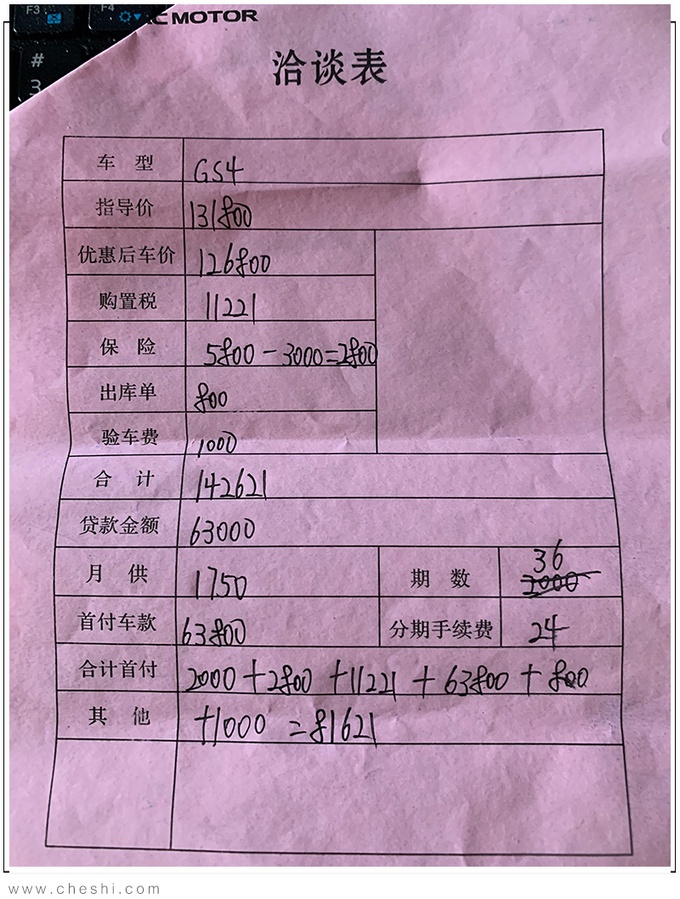 F3 F4
#
3
AC MOTOR
洽谈表
车 型 GS4
指导价 131800
优惠后车价 126800
购置税 11221
保 险 5800-3000=2800
出库单 800
验车费 1000
合 计 142621
贷款金额 63000
月 供 1750 期 数 36 2000
首付车款 63800 分期手续费 24
合计首付 2000+2800+11221+63800+800
其 他 +1000=81621
www.cheshi.com